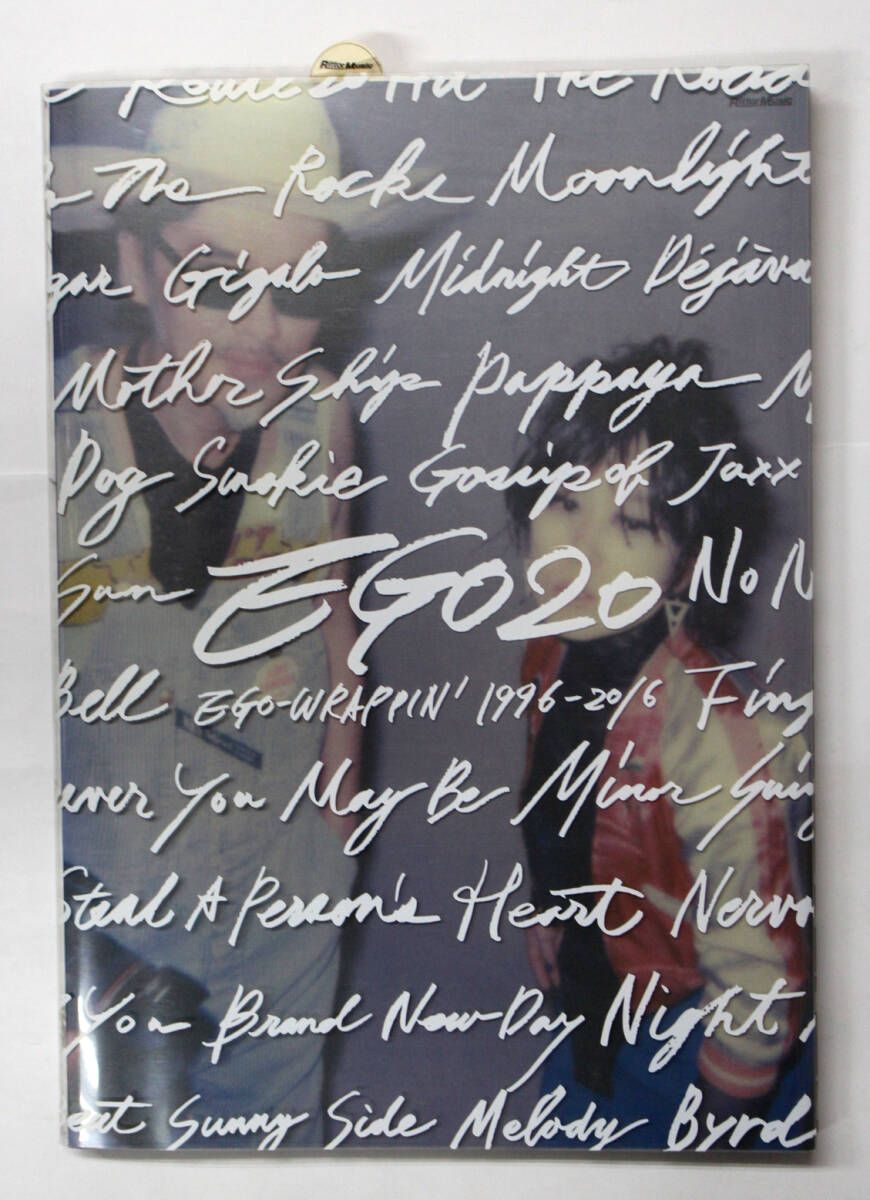 Rittor Music
Route 20 Hit The Road
Rittor Music
The Rocks Moonlight
gar Gigalo Midnight Déjàvu
Mother Ship Pappaya
Dog Smokie Gossip of Jaxx
Sun EGO20 No N
Bell EGO-WRAPPIN' 1996-2016 Fing
ever You May Be Minor Swing
Steal A Person's Heart Nervo
You Brand New Day Night
eat Sunny Side Melody Byrd